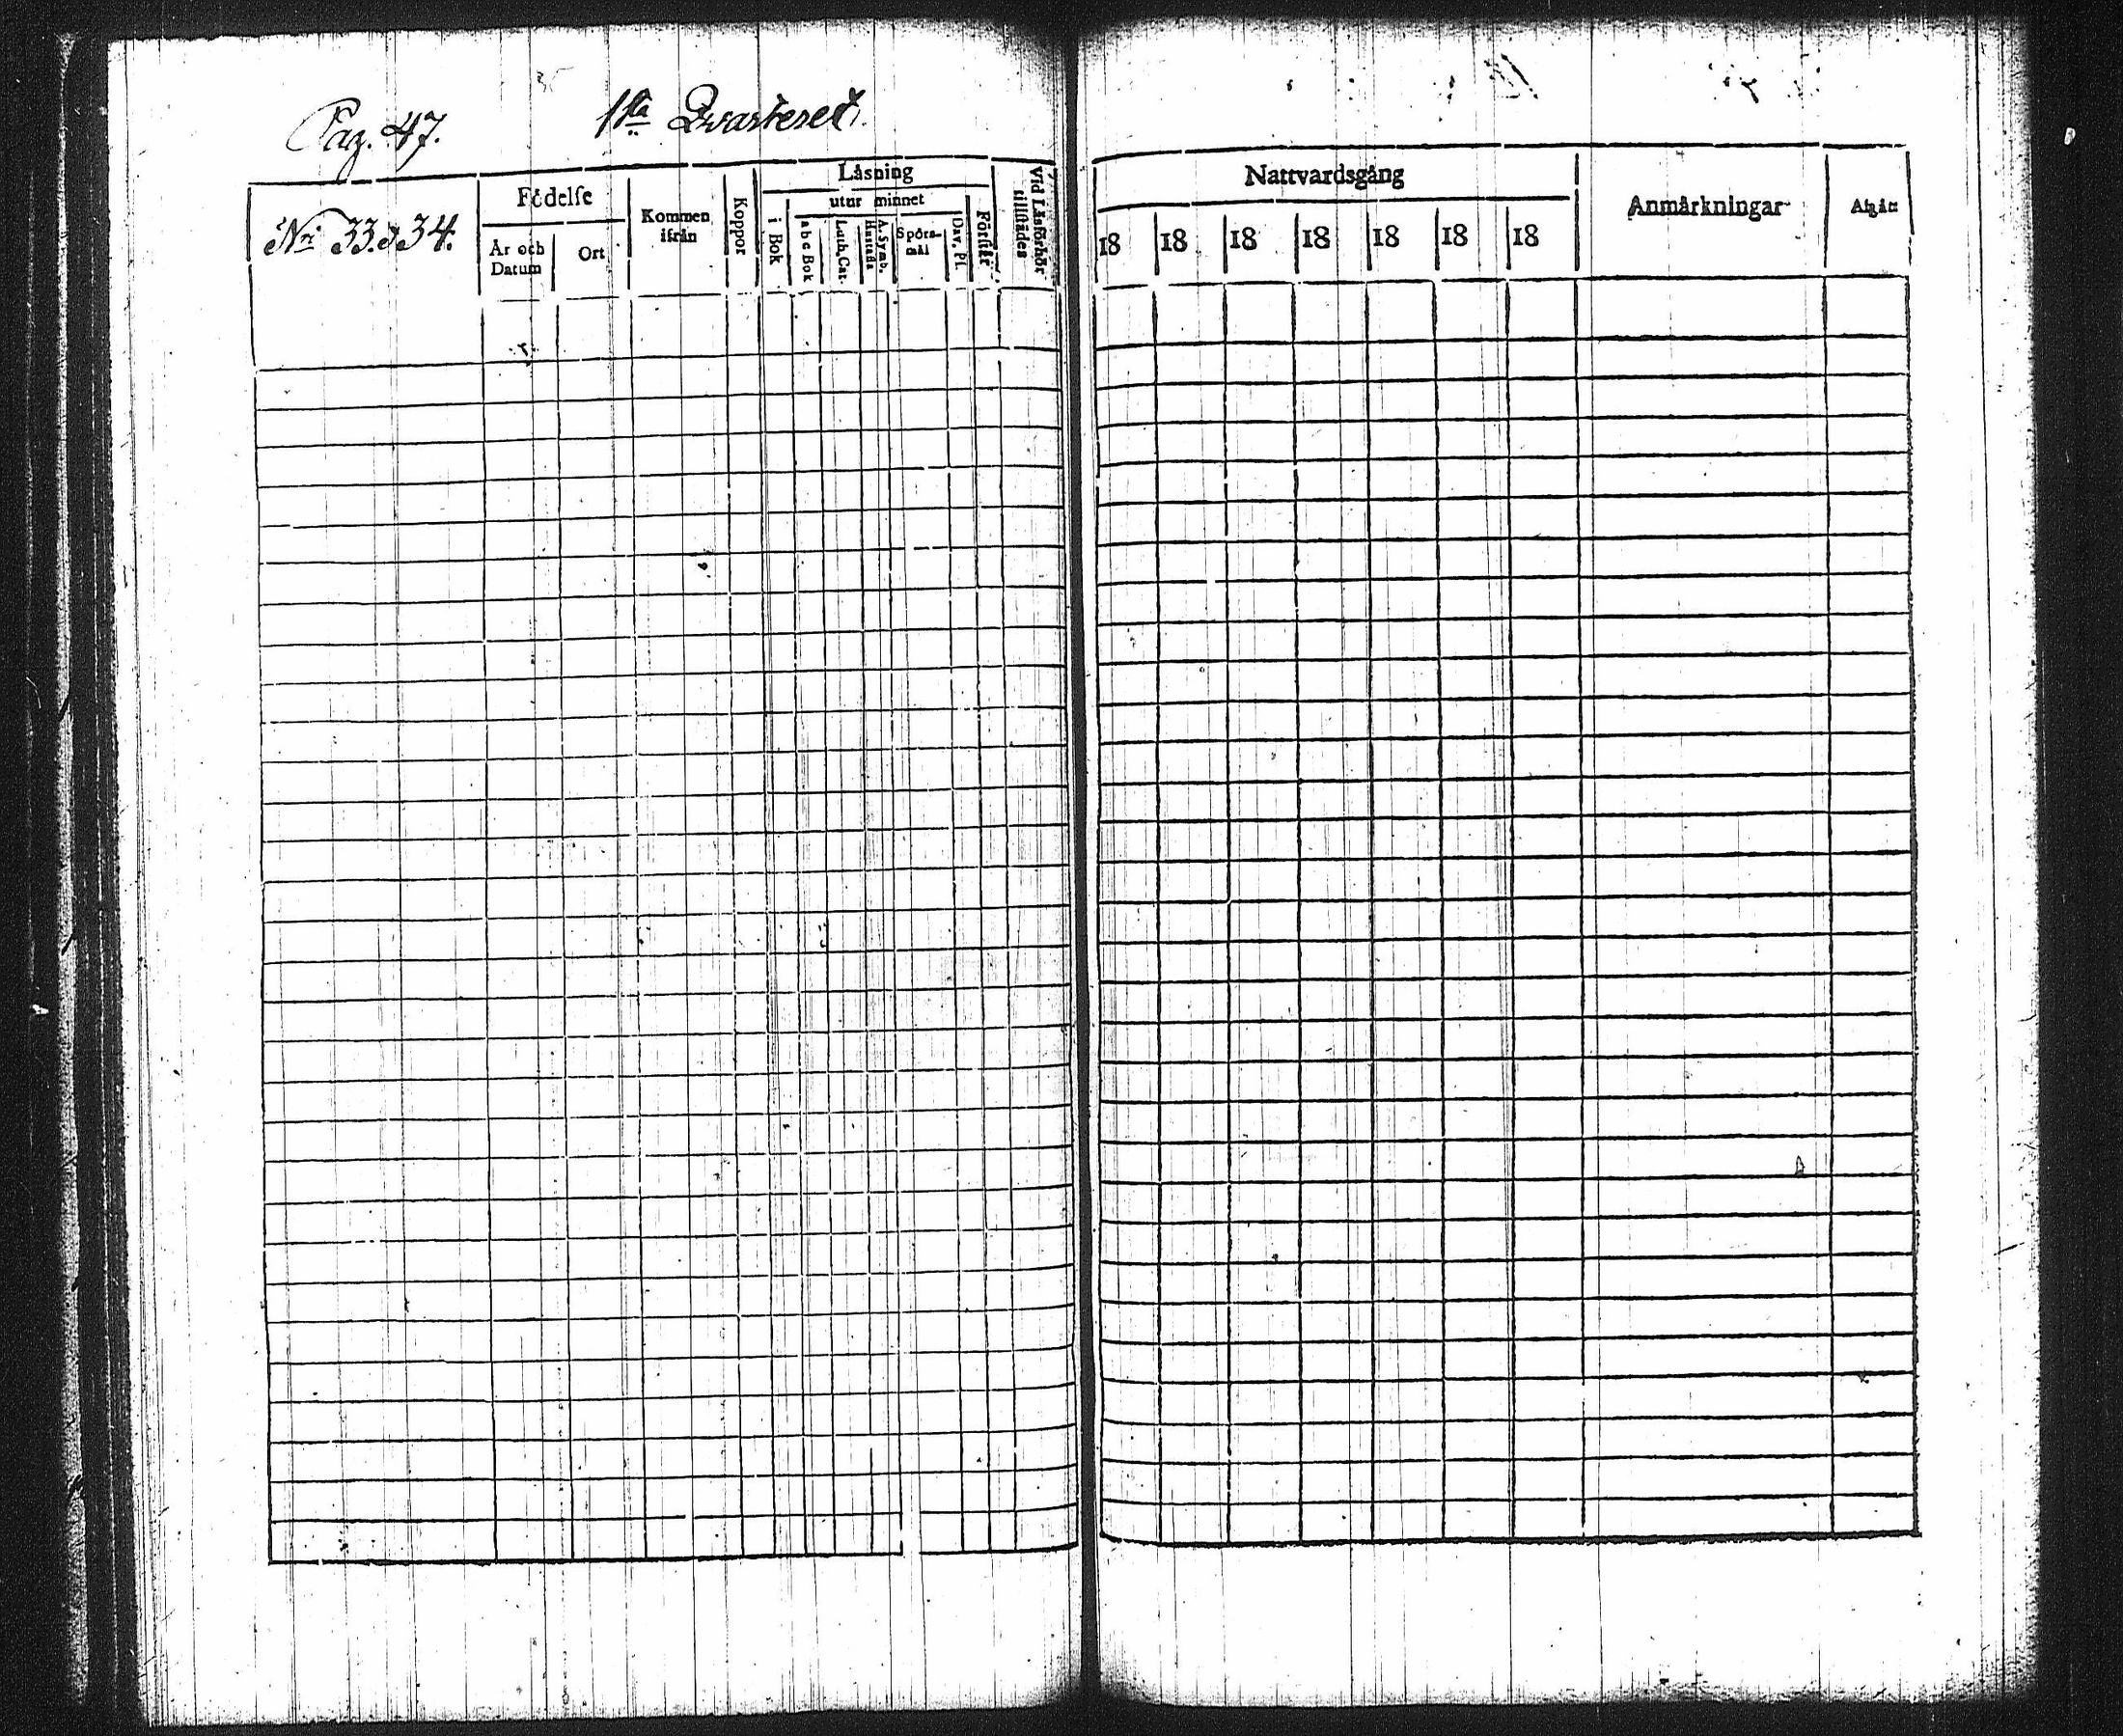 Pag. 47. 1sta Qvarteret.
Nr 33. & 34.
Födelse
År och Datum
Ort
Kommen ifrån
Koppor
Låsning
i Bok
utur minnet
a b c Bok
Luth. Cat.
A. Symb. Hustafla
Spörsmål
Dav. Ps.
Förstår
Vid Låsförhör tillstädes
Nattvardsgång
18 18 18 18 18 18 18
Anmårkningar
Afgått